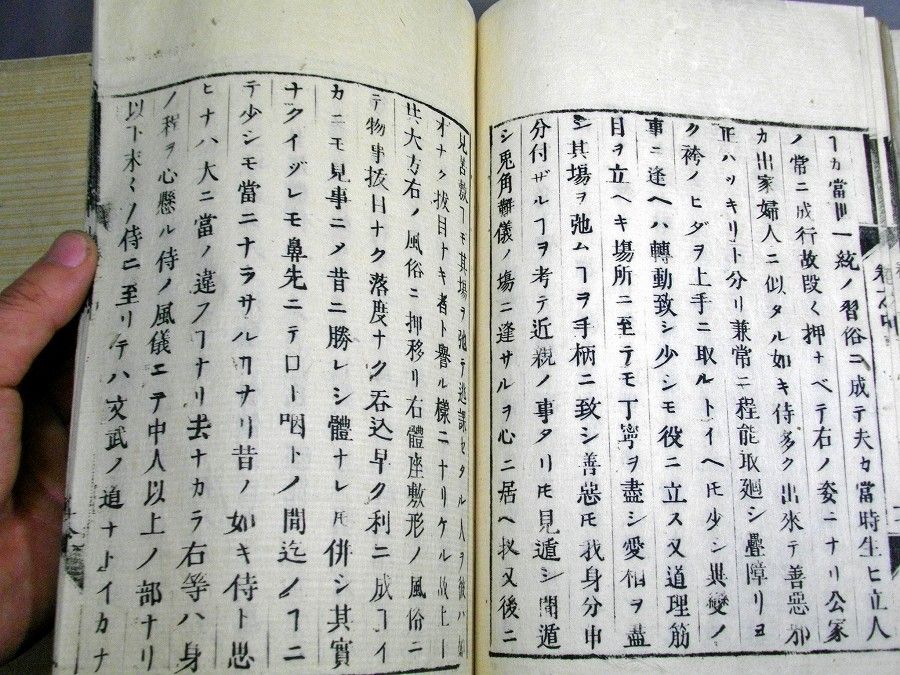 ヿカ當世一統ノ習俗ニ成テ夫カ當時生ヒ立人
ノ常ニ成行故段〱押ナベテ右ノ姿ニナリ公家
カ出家婦人ニ似タル如キ侍多ク出來テ善惡邪
正ハッキリト分リ兼常ニ程能取廻シ疊障リヨ
ク袴ノヒダヲ上手ニ取ルトイヘ𪜈少シ異變ノ
事ニ逢ヘハ轉動致シ少シモ役ニ立ス又道理筋
目ヲ立ヘキ場所ニ至テモ丁寧ヲ盡シ愛相ヲ盡
シ其場ヲ弛ムヿヲ手柄ニ致シ善惡𪜈我身分申
分付ザルヿヲ考テ近親ノ事タリ𪜈見遁シ聞遁
シ兎角難儀ノ場ニ逢サルヲ心ニ居ヘ扨又後ニ
ヿモ其場ヲ弛テ逃課セタル人ヲ彼ハ
オナク拔目ナキ者ト譽ル樣ニナリケル故上一
比大方右ノ風俗ニ押移リ右體座敷形ノ風俗ニ
テ物事拔目ナク落度ナク呑込早ク利ニ成ヿイ
カニモ見事ニ〆昔ニ勝レシ體ナレ𪜈併シ其實
ナクイヅレモ鼻先ニテロト咽トノ間迄ノヿニ
テ少シモ當ニナラサルヿナリ昔ノ如キ侍ト思
ヒナハ大ニ當ノ違フヿナリ去ナカラ右等ハ身
ノ程ヲ心懸ル侍ノ風儀ニテ中人以上ノ部ナリ
以下末〱ノ侍ニ至リテハ文武ノ道ナトイカナ